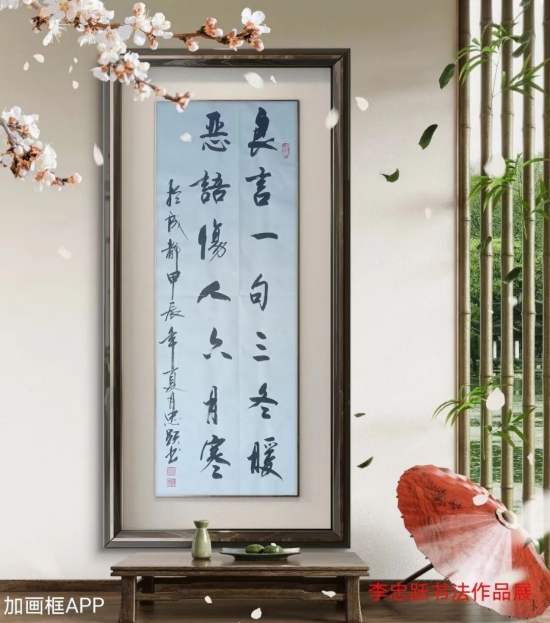 良言一句三冬暖
恶語傷人六月寒
於成都甲辰年夏月忠跃书
李忠跃书法作品展
加画框APP